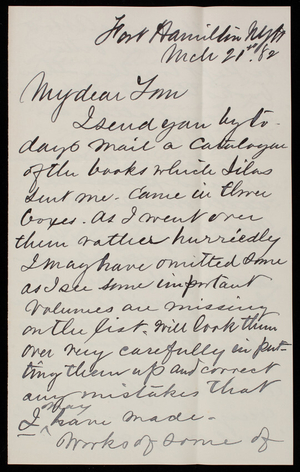 Fort Hamilton NYH
Mch 21st/82
My dear Tom
I send you by to-
days mail a Catalogue
of the books which Silas
sent me. Came in three
boxes. As I went over
them rather hurriedly
I may have omitted some
as I see some important
volumes are missing
on the list. Will look them
over very carefully in put-
ting them up and correct
any mistakes that
I may have made.
Works of some of